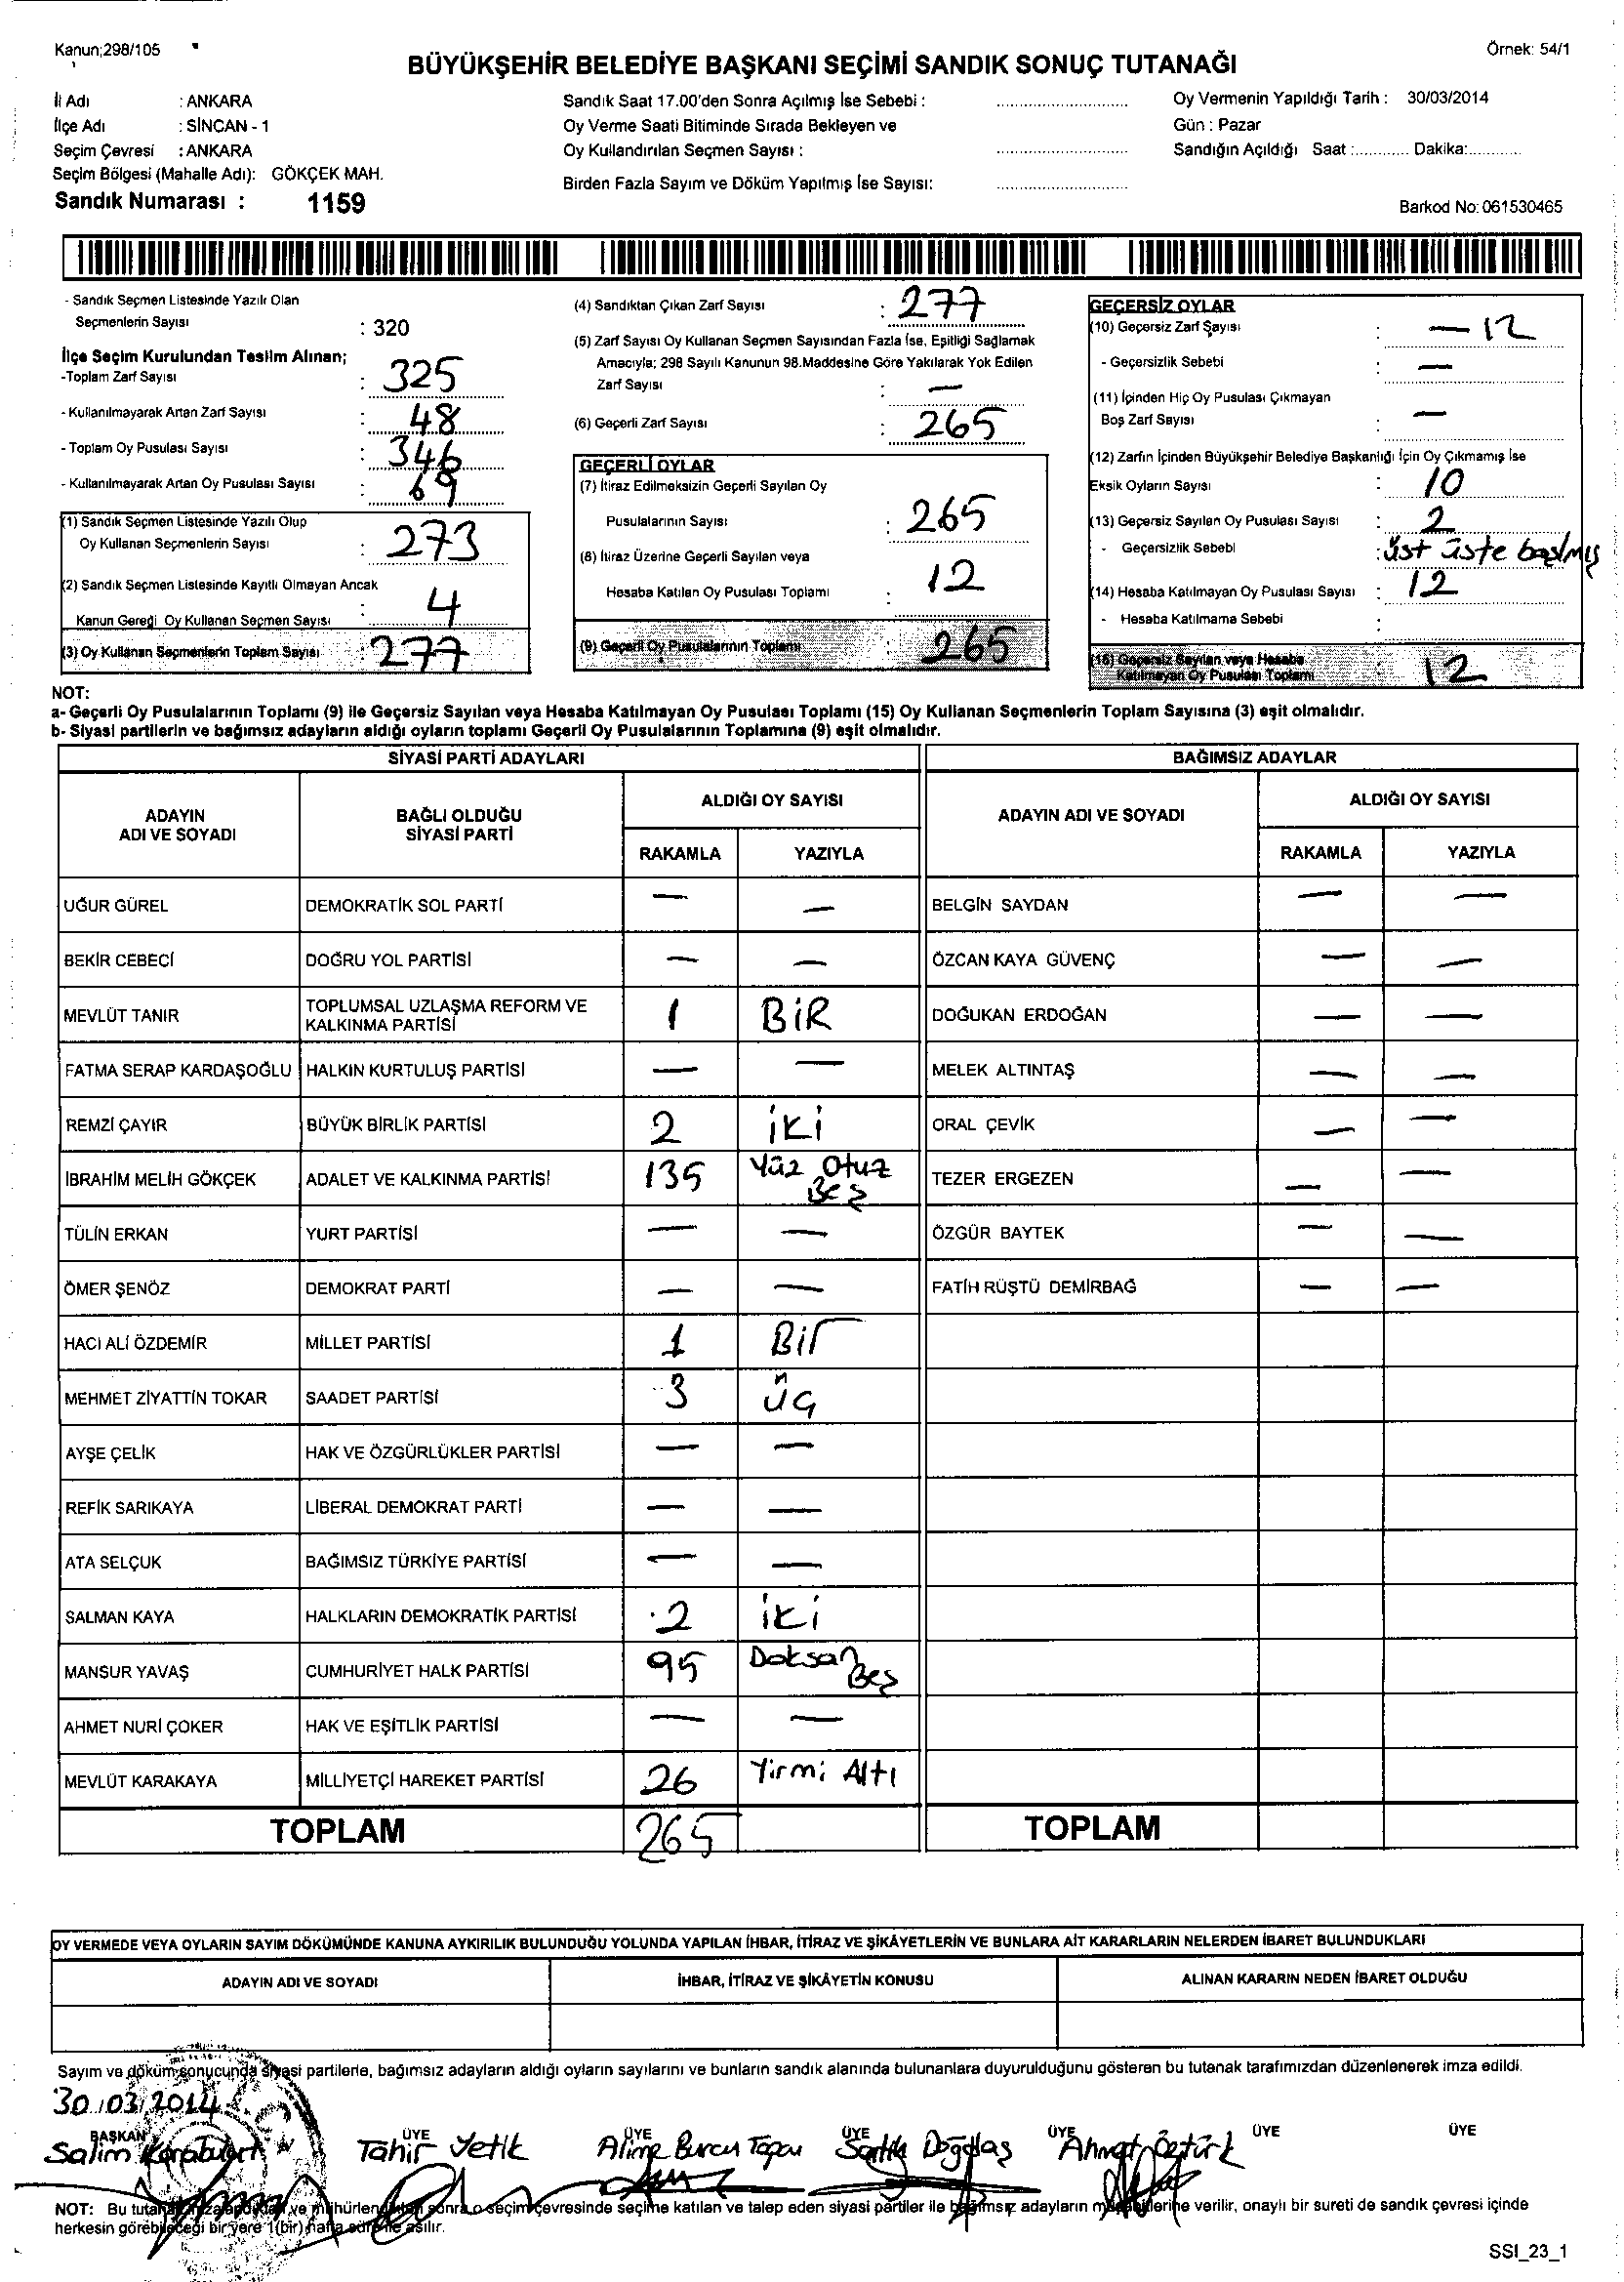 Kanun;298/105
Örnek: 54/1
BÜYÜKŞEHİR BELEDİYE BAŞKANI SEÇİMİ SANDIK SONUÇ TUTANAĞI
İl Adı : ANKARA
İlçe Adı : SİNCAN - 1
Seçim Çevresi : ANKARA
Seçim Bölgesi (Mahalle Adı): GÖKÇEK MAH.
Sandık Numarası : 1159
Sandık Saat 17.00'den Sonra Açılmış İse Sebebi :
Oy Verme Saati Bitiminde Sırada Bekleyen ve
Oy Kullandırılan Seçmen Sayısı :
Birden Fazla Sayım ve Döküm Yapılmış İse Sayısı:
Oy Vermenin Yapıldığı Tarih : 30/03/2014
Gün : Pazar
Sandığın Açıldığı Saat :............ Dakika:...........
Barkod No: 061530465
- Sandık Seçmen Listesinde Yazılı Olan
Seçmenlerin Sayısı : 320
İlçe Seçim Kurulundan Teslim Alınan;
-Toplam Zarf Sayısı : 325
- Kullanılmayarak Artan Zarf Sayısı : 48
- Toplam Oy Pusulası Sayısı : 346
- Kullanılmayarak Artan Oy Pusulası Sayısı : 69
(1) Sandık Seçmen Listesinde Yazılı Olup
Oy Kullanan Seçmenlerin Sayısı : 273
(2) Sandık Seçmen Listesinde Kayıtlı Olmayan Ancak
Kanun Gereği Oy Kullanan Seçmen Sayısı : 4
(3) Oy Kullanan Seçmenlerin Toplam Sayısı : 277
(4) Sandıktan Çıkan Zarf Sayısı : 277
(5) Zarf Sayısı Oy Kullanan Seçmen Sayısından Fazla İse, Eşitliği Sağlamak
Amacıyla; 298 Sayılı Kanunun 98.Maddesine Göre Yakılarak Yok Edilen
Zarf Sayısı : —
(6) Geçerli Zarf Sayısı : 265
GEÇERLİ OYLAR
(7) İtiraz Edilmeksizin Geçerli Sayılan Oy
Pusulalarının Sayısı : 265
(8) İtiraz Üzerine Geçerli Sayılan veya
Hesaba Katılan Oy Pusulası Toplamı : 12
(9) Geçerli Oy Pusulalarının Toplamı : 265
GEÇERSİZ OYLAR
(10) Geçersiz Zarf Sayısı : — 12
- Geçersizlik Sebebi : —
(11) İçinden Hiç Oy Pusulası Çıkmayan
Boş Zarf Sayısı : —
(12) Zarfın İçinden Büyükşehir Belediye Başkanlığı İçin Oy Çıkmamış İse
Eksik Oyların Sayısı : 10
(13) Geçersiz Sayılan Oy Pusulası Sayısı : 2
- Geçersizlik Sebebi : üst üste basılmış
(14) Hesaba Katılmayan Oy Pusulası Sayısı : 12
- Hesaba Katılmama Sebebi :
(15) Geçersiz Sayılan veya Hesaba
Katılmayan Oy Pusulası Toplamı : 12
NOT:
a- Geçerli Oy Pusulalarının Toplamı (9) ile Geçersiz Sayılan veya Hesaba Katılmayan Oy Pusulası Toplamı (15) Oy Kullanan Seçmenlerin Toplam Sayısına (3) eşit olmalıdır.
b- Siyasi partilerin ve bağımsız adayların aldığı oyların toplamı Geçerli Oy Pusulalarının Toplamına (9) eşit olmalıdır.
SİYASİ PARTİ ADAYLARI
ADAYIN ADI VE SOYADI BAĞLI OLDUĞU SİYASİ PARTİ ALDIĞI OY SAYISI
RAKAMLA YAZIYLA
UĞUR GÜREL DEMOKRATİK SOL PARTİ — —
BEKİR CEBECİ DOĞRU YOL PARTİSİ — —
MEVLÜT TANIR TOPLUMSAL UZLAŞMA REFORM VE KALKINMA PARTİSİ 1 BİR
FATMA SERAP KARDAŞOĞLU HALKIN KURTULUŞ PARTİSİ — —
REMZİ ÇAYIR BÜYÜK BİRLİK PARTİSİ 2 İKİ
İBRAHİM MELİH GÖKÇEK ADALET VE KALKINMA PARTİSİ 135 Yüz Otuz Beş
TÜLİN ERKAN YURT PARTİSİ — —
ÖMER ŞENÖZ DEMOKRAT PARTİ — —
HACI ALİ ÖZDEMİR MİLLET PARTİSİ 1 Bir
MEHMET ZİYATTİN TOKAR SAADET PARTİSİ 3 ÜÇ
AYŞE ÇELİK HAK VE ÖZGÜRLÜKLER PARTİSİ — —
REFİK SARIKAYA LİBERAL DEMOKRAT PARTİ — —
ATA SELÇUK BAĞIMSIZ TÜRKİYE PARTİSİ — —
SALMAN KAYA HALKLARIN DEMOKRATİK PARTİSİ 2 iki
MANSUR YAVAŞ CUMHURİYET HALK PARTİSİ 95 Doksan Beş
AHMET NURİ ÇOKER HAK VE EŞİTLİK PARTİSİ — —
MEVLÜT KARAKAYA MİLLİYETÇİ HAREKET PARTİSİ 26 Yirmi Altı
TOPLAM 265
BAĞIMSIZ ADAYLAR
ADAYIN ADI VE SOYADI ALDIĞI OY SAYISI
RAKAMLA YAZIYLA
BELGİN SAYDAN — —
ÖZCAN KAYA GÜVENÇ — —
DOĞUKAN ERDOĞAN — —
MELEK ALTINTAŞ — —
ORAL ÇEVİK — —
TEZER ERGEZEN — —
ÖZGÜR BAYTEK — —
FATİH RÜŞTÜ DEMİRBAĞ — —
TOPLAM
OY VERMEDE VEYA OYLARIN SAYIM DÖKÜMÜNDE KANUNA AYKIRILIK BULUNDUĞU YOLUNDA YAPILAN İHBAR, İTİRAZ VE ŞİKÂYETLERİN VE BUNLARA AİT KARARLARIN NELERDEN İBARET BULUNDUKLARI
ADAYIN ADI VE SOYADI İHBAR, İTİRAZ VE ŞİKÂYETİN KONUSU ALINAN KARARIN NEDEN İBARET OLDUĞU
Sayım ve döküm sonucunda siyasi partilerle, bağımsız adayların aldığı oyların sayılarını ve bunların sandık alanında bulunanlara duyurulduğunu gösteren bu tutanak tarafımızdan düzenlenerek imza edildi.
30/03/2014
BAŞKAN ÜYE ÜYE ÜYE ÜYE ÜYE ÜYE
Salim Karabulut Tahir Yetik Alime Burcu Topcu Sadık Doğdaş Ahmet Öztürk
NOT: Bu tutanak imzalandıktan ve mühürlendikten sonra o seçim çevresinde seçime katılan ve talep eden siyasi partiler ile bağımsız adayların müşahitlerine verilir, onaylı bir sureti de sandık çevresi içinde
herkesin görebileceği bir yere 1(bir) hafta süre ile asılır.
SSI_23_1